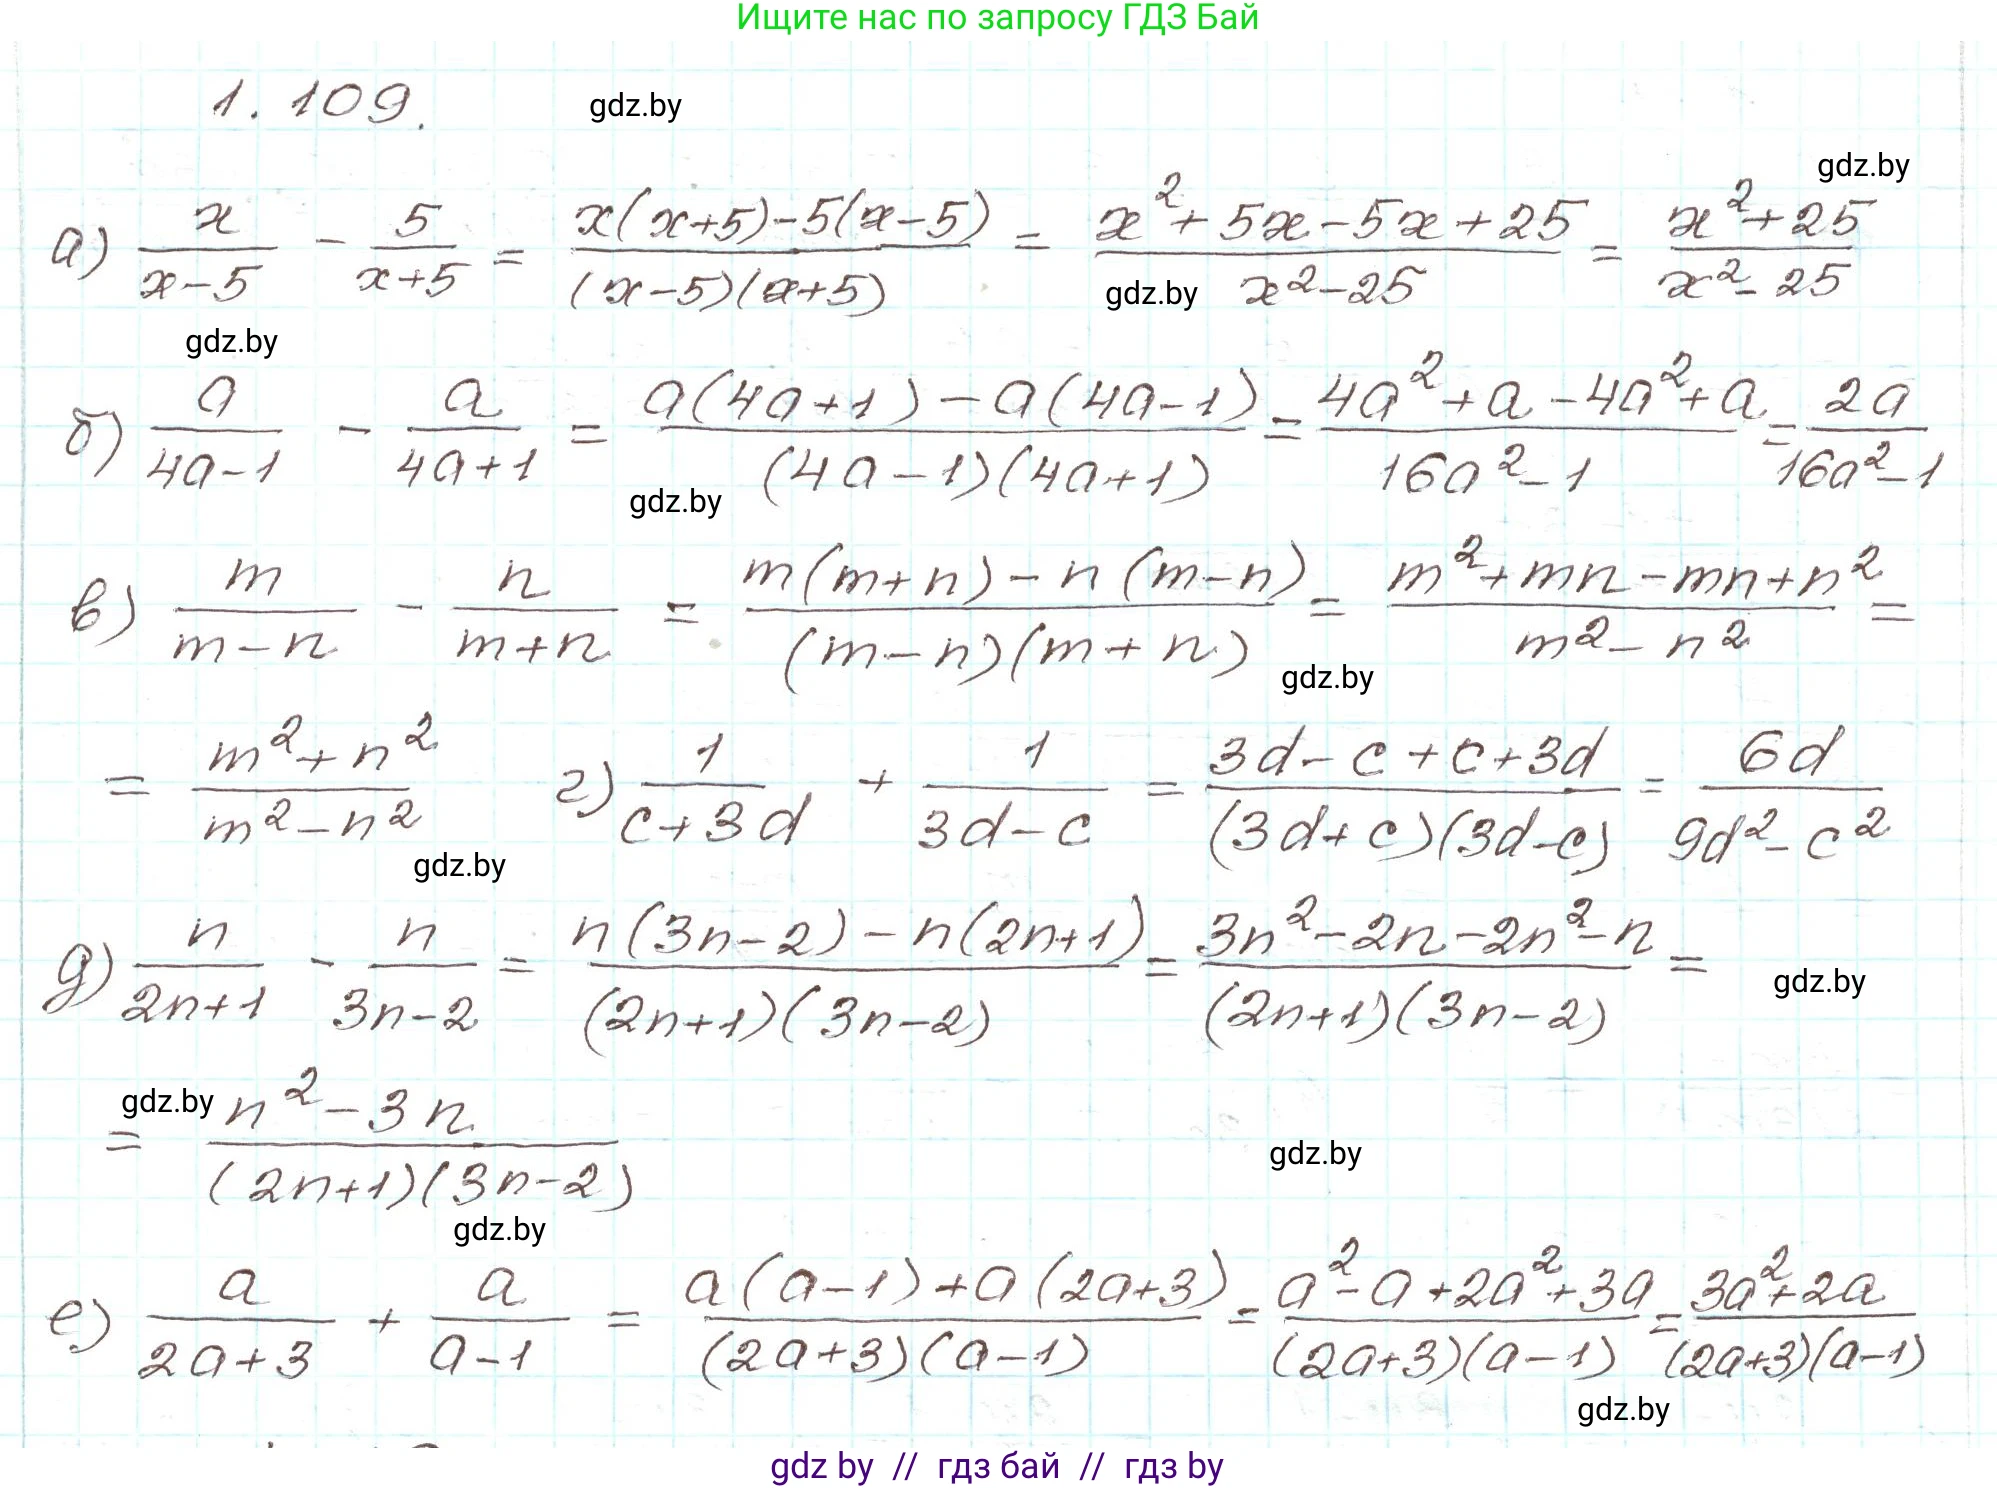 Ищите нас по запросу ГДЗ Бай
1.109. gdz.by
gdz.by
а) x/(x-5) - 5/(x+5) = (x(x+5)-5(x-5))/((x-5)(x+5)) = (x²+5x-5x+25)/(x²-25) = (x²+25)/(x²-25)
gdz.by
gdz.by
б) a/(4a-1) - a/(4a+1) = (a(4a+1)-a(4a-1))/((4a-1)(4a+1)) = (4a²+a-4a²+a)/(16a²-1) = 2a/(16a²-1)
gdz.by
в) m/(m-n) - n/(m+n) = (m(m+n)-n(m-n))/((m-n)(m+n)) = (m²+mn-mn+n²)/(m²-n²) =
gdz.by
= (m²+n²)/(m²-n²) г) 1/(c+3d) + 1/(3d-c) = (3d-c+c+3d)/((3d+c)(3d-c)) = 6d/(9d²-c²)
gdz.by
д) n/(2n+1) - n/(3n-2) = (n(3n-2)-n(2n+1))/((2n+1)(3n-2)) = (3n²-2n-2n²-n)/((2n+1)(3n-2)) =
gdz.by
gdz.by
= (n²-3n)/((2n+1)(3n-2))
gdz.by
gdz.by
е) a/(2a+3) + a/(a-1) = (a(a-1)+a(2a+3))/((2a+3)(a-1)) = (a²-a+2a²+3a)/((2a+3)(a-1)) = (3a²+2a)/((2a+3)(a-1))
gdz.by
gdz by // гдз бай // гдз by